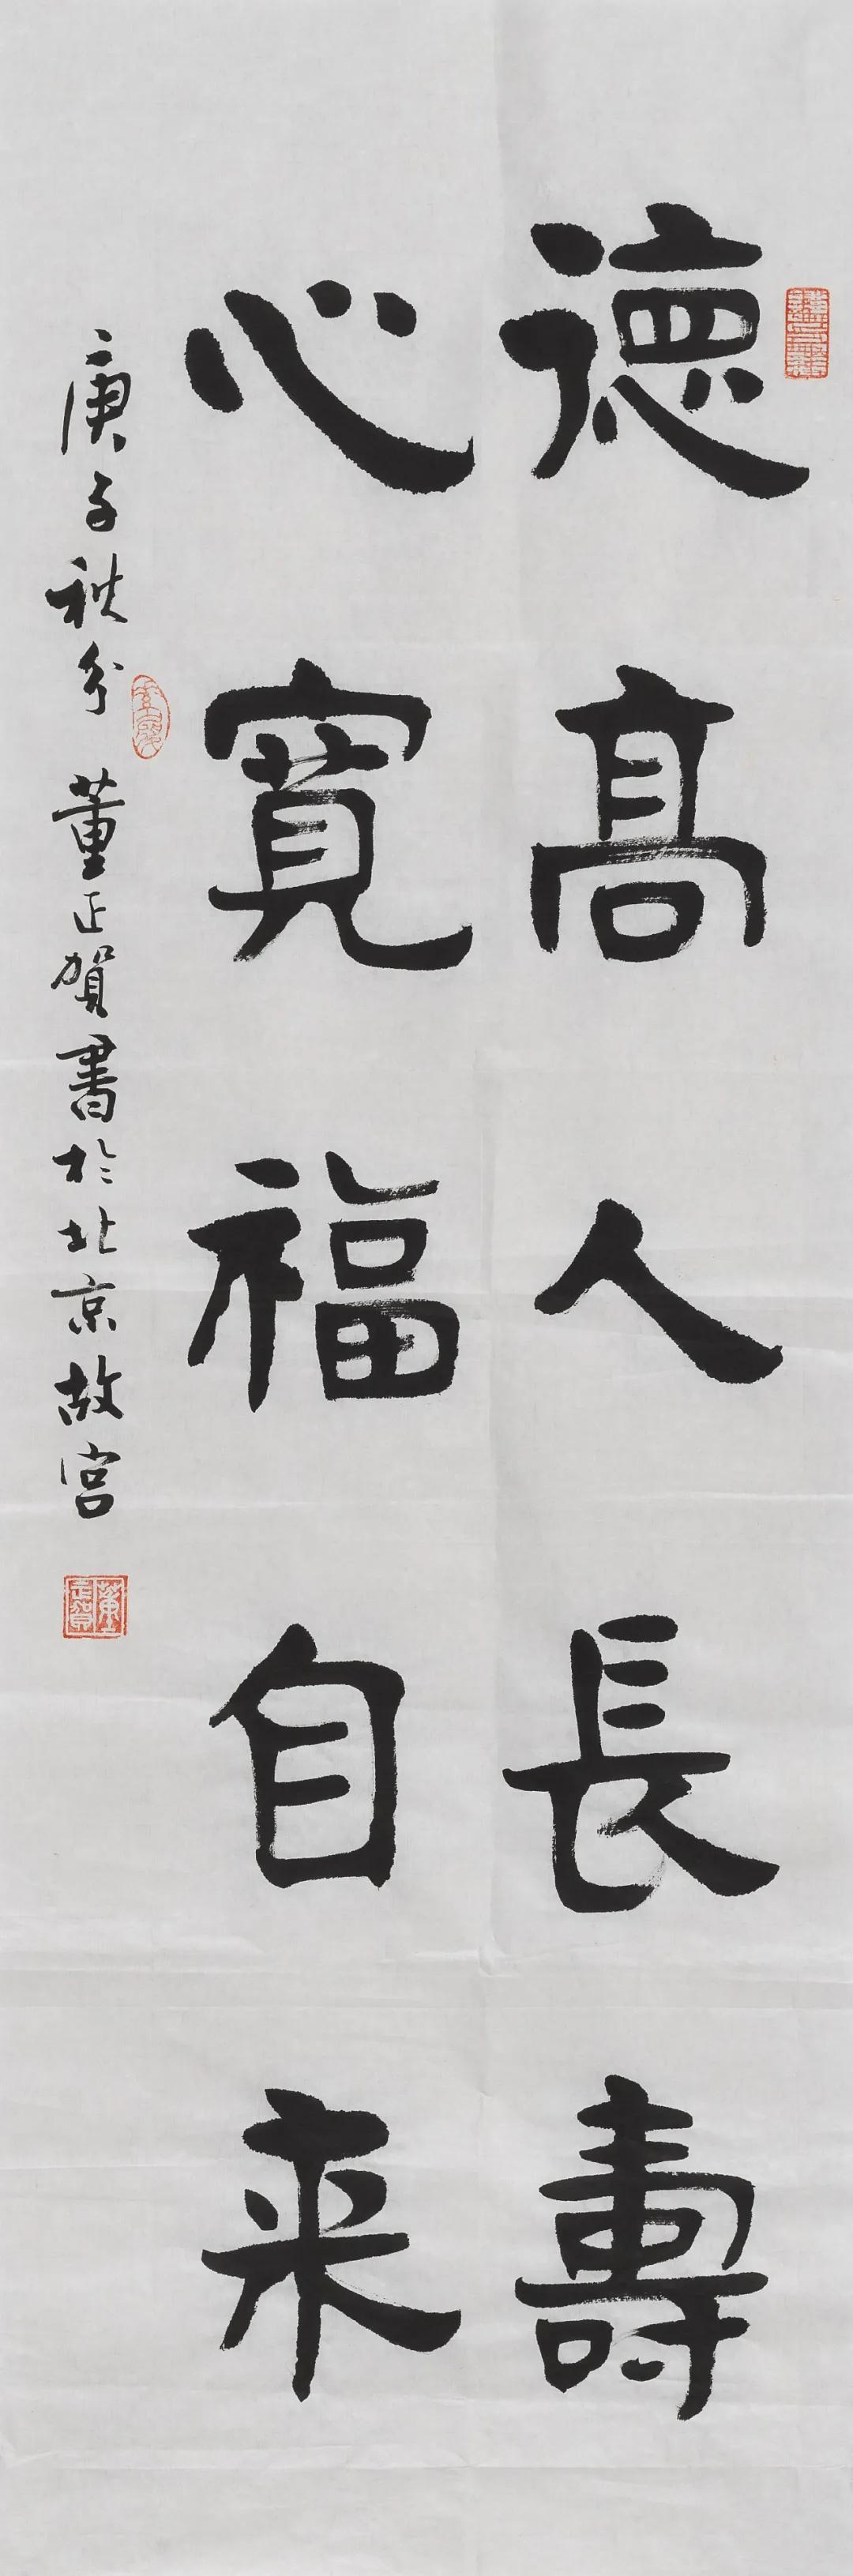 德高人長壽
心寬福自来
庚子秋分 董正賀書於北京故宫
董正賀